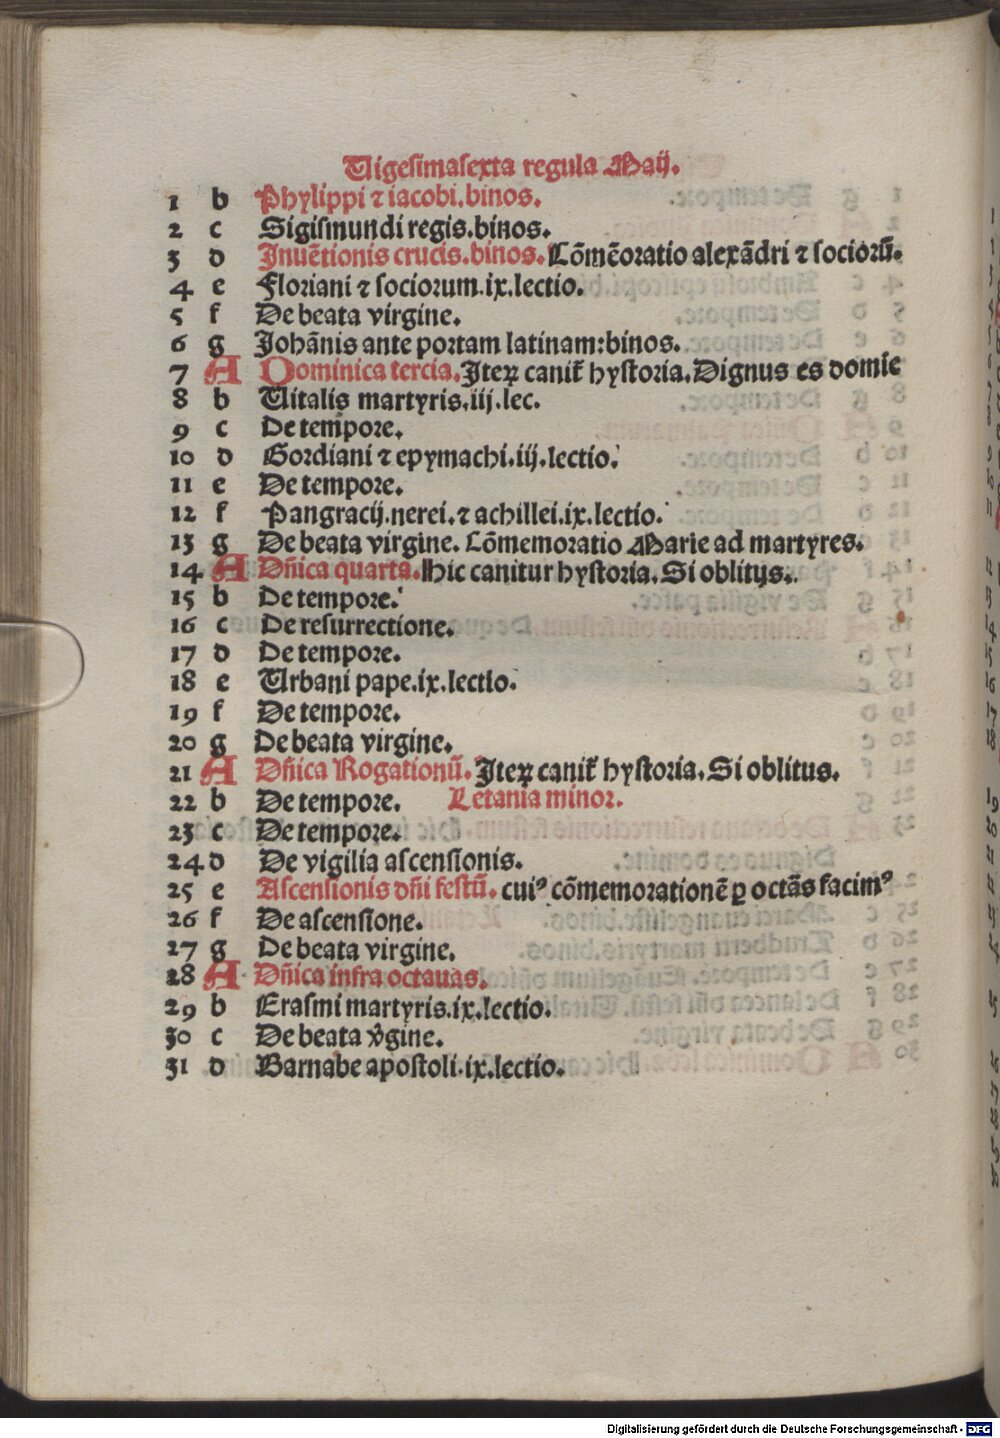 Vigesimasexta regula Maij.
1 b Phylippi ⁊ iacobi.binos.
2 c Sigismundi regis.binos.
3 d Inuētionis crucis.binos. Cōmēoratio alexādri ⁊ socioꝛū.
4 e Floriani ⁊ socioꝛum.ix.lectio.
5 f De beata virgine.
6 g Johānis ante poꝛtam latinam:binos.
7 A Dominica tercia. Iteꝝ canit᷑ hystoꝛia. Dignus es domīe
8 b Vitalis martyris.iij.lec.
9 c De tempoꝛe.
10 d Goꝛdiani ⁊ epymachi.iij.lectio.
11 e De tempoꝛe.
12 f Pangracij.nerei.⁊ achillei.ix.lectio.
13 g De beata virgine. Cōmemoꝛatio Marie ad martyres.
14 A Dn̄ica quarta. Hic canitur hystoꝛia. Si oblitus.
15 b De tempoꝛe.
16 c De resurrectione.
17 d De tempoꝛe.
18 e Urbani pape.ix.lectio.
19 f De tempoꝛe.
20 g De beata virgine.
21 A Dn̄ica Rogationū. Iteꝝ canit᷑ hystoꝛia. Si oblitus.
22 b De tempoꝛe. Letania minoꝛ.
23 c De tempoꝛe.
24 d De vigilia ascensionis.
25 e Ascensionis dn̄i festū. cuiꝰ cōmemoꝛationē ꝑ octās facimꝰ
26 f De ascensione.
27 g De beata virgine.
28 A Dn̄ica infra octauas.
29 b Erasmi martyris.ix.lectio.
30 c De beata v̓gine.
31 d Barnabe apostoli.ix.lectio.
Digitalisierung gefördert durch die Deutsche Forschungsgemeinschaft - DFG